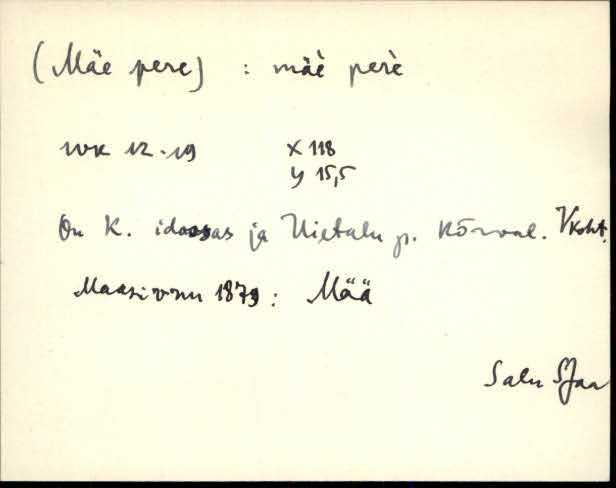 (Mäe pere) : mäè perè
wk 12-19 x 118
y 15,5
On K. idaosas ja Uietalu p. kõrval. Vkoht.
Maasivnu 1879: Mää
Salu SJaa